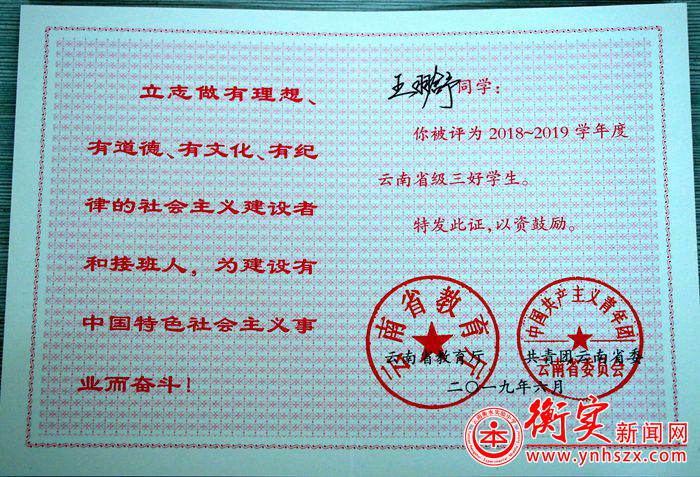 立志做有理想、
有道德、有文化、有纪
律的社会主义建设者
和接班人，为建设有
中国特色社会主义事
业而奋斗！
同学：
你被评为2018~2019学年度
云南省级三好学生。
特发此证，以资鼓励。
云南省教育厅
云南省教育厅
中国共产主义青年团
云南省委员会
共青团云南省委
二〇一九年六月
衡实新闻网
www.ynhszx.com